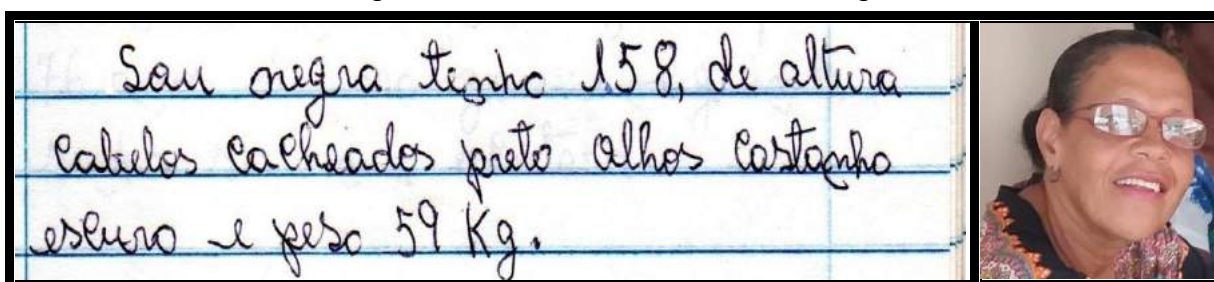 Sou negra tenho 1.58, de altura
cabelos cacheados preto olhos castanho
escuro e peso 59 Kg.